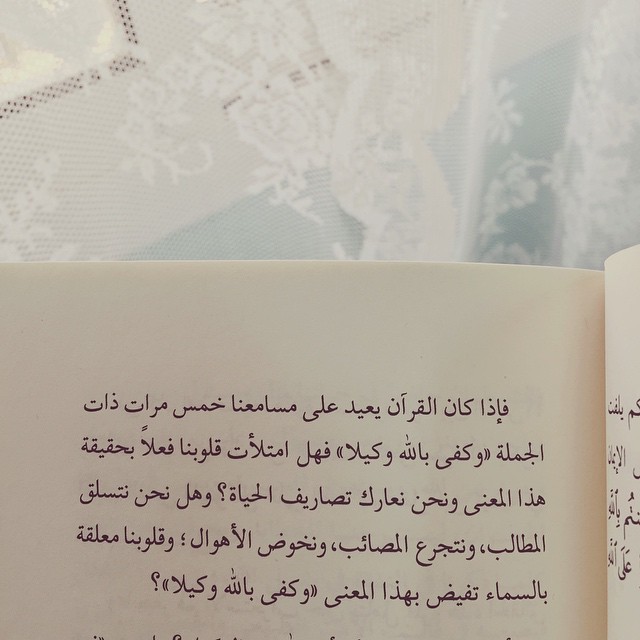 فإذا كان القرآن يعيد على مسامعنا خمس مرات ذات
الجملة «وكفى بالله وكيلا» فهل امتلأت قلوبنا فعلاً بحقيقة
هذا المعنى ونحن نعارك تصاريف الحياة؟ وهل نحن نتسلق
المطالب، ونتجرع المصائب، ونخوض الأهوال؛ وقلوبنا معلقة
بالسماء تفيض بهذا المعنى «وكفى بالله وكيلا»؟